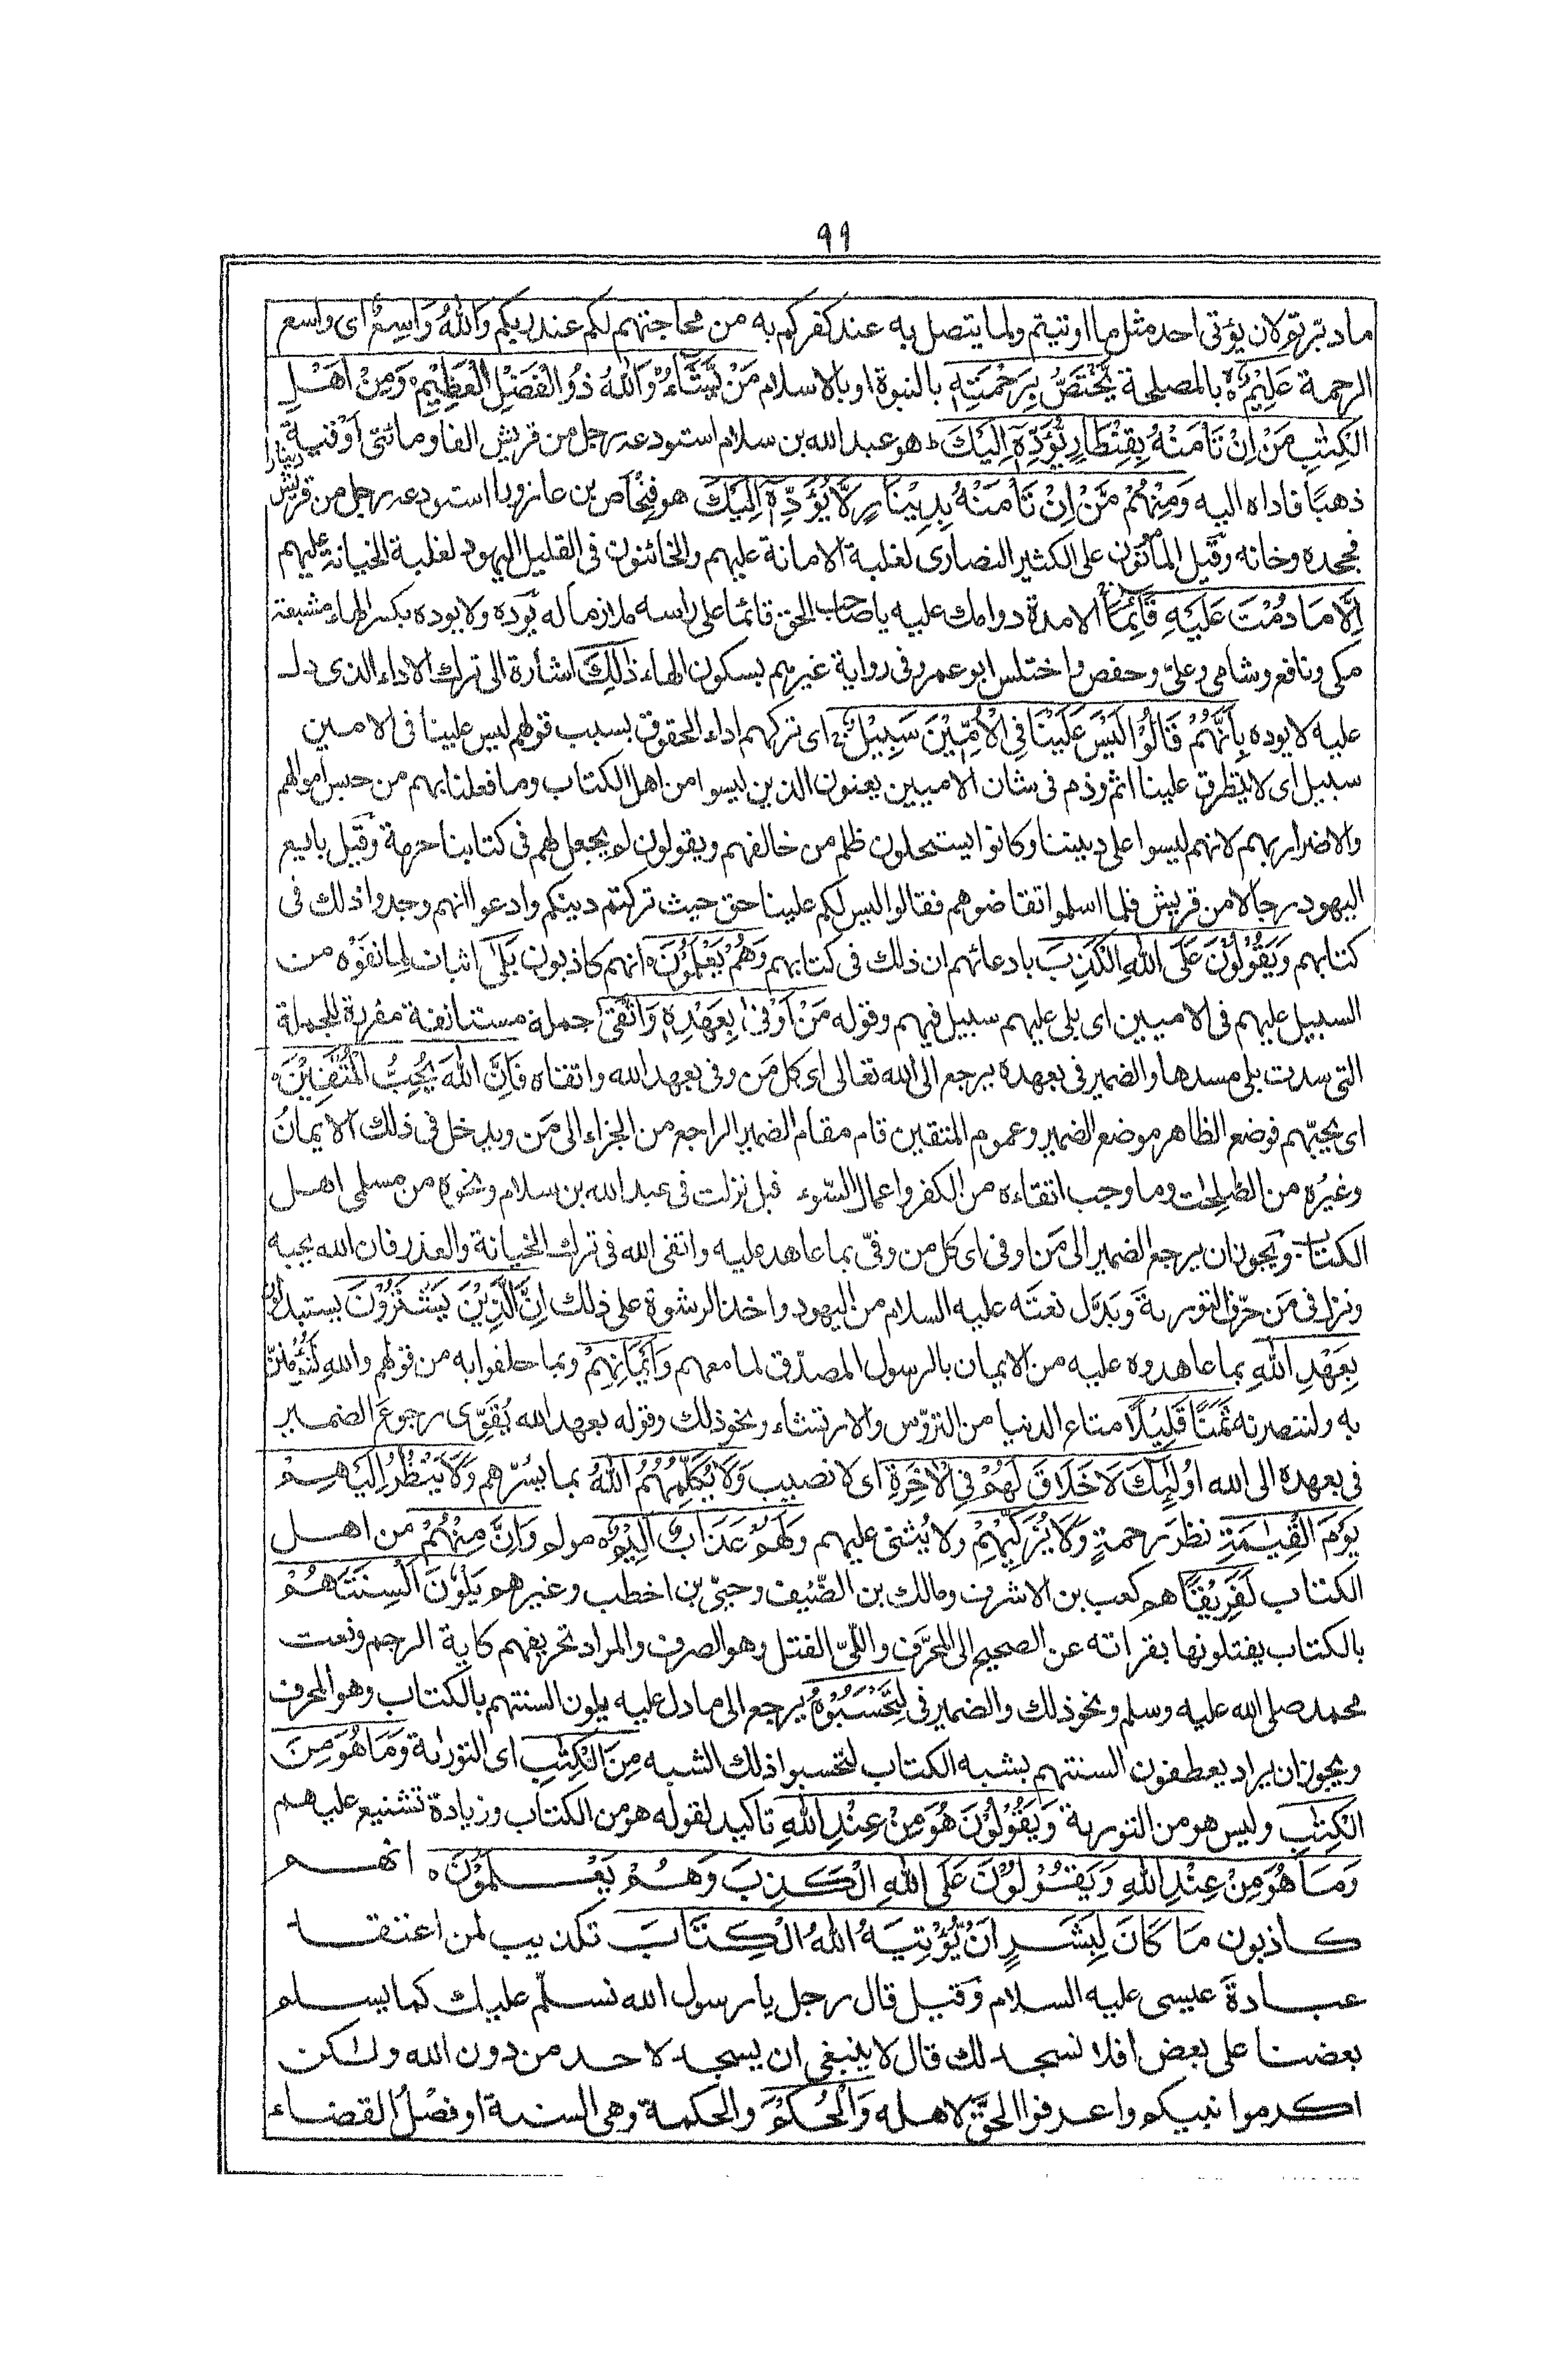 ٩٩
ما دبرتم لان يؤتى احد مثل ما اوتيتم ولما يتصل به عند كفركم به من محاجتهم لكم عند ربكم وَاللهُ وَاسِعٌ اى واسع
الرحمة عَلِيْمٌ بالمصلحة يَّخْتَصُّ بِرَحْمَتِهٖ بالنبوة او بالاسلام مَنْ يَّشَآءُ وَاللهُ ذُو الْفَضْلِ الْعَظِيْمِ وَمِنْ اَهْلِ
الْكِتٰبِ مَنْ اِنْ تَاْمَنْهُ بِقِنْطَارٍ يُّؤَدِّهٖٓ اِلَيْكَ هو عبد الله بن سلام استودعه رجل من قريش الفا ومائتى اوقية
ذهبًا فاداه اليه وَمِنْهُمْ مَّنْ اِنْ تَاْمَنْهُ بِدِيْنَارٍ لَّا يُؤَدِّهٖٓ اِلَيْكَ هو فنحاص بن عازورا استودعه رجل من قريش دينارا
فجحده وخانه وقيل المأمنون على الكثير النصارى لغلبة الامانة عليهم والخائنون فى القليل اليهود لغلبة الخيانة عليهم
اِلَّا مَا دُمْتَ عَلَيْهِ قَآئِمًا الا مدة دوامك عليه يا صاحب الحق قائما على راسه ملازما له يؤده ولا يوده بكسر الهاء مشبعة
مكى ونافع وشامى وعلىّ وحفص واختلس ابو عمرو فى رواية غيرهم بسكون الهاء ذٰلِكَ اشارة الى ترك الاداء الذى دل
عليه لا يوده بِاَنَّهُمْ قَالُوْا لَيْسَ عَلَيْنَا فِى الْاُمِّيّٖنَ سَبِيْلٌ اى تركهم اداء الحقوق بسبب قولهم ليس علينا فى الاميين
سبيل اى لا يتطرق علينا اثم وذم فى شان الاميين يعنون الذين ليسوا من اهل الكتاب وما فعلنا بهم من حبس اموالهم
والاضرار بهم لانهم ليسوا على ديننا وكانوا يستحلون ظلم من خالفهم ويقولون لم يجعل لهم فى كتابنا حرمة وقيل بايع
اليهود رجالا من قريش فلما اسلموا تقاضوهم فقالوا ليس لكم علينا حق حيث تركتم دينكم وادعوا انهم وجدوا ذلك فى
كتابهم وَيَقُوْلُوْنَ عَلَى اللهِ الْكَذِبَ بادعائهم ان ذلك فى كتابهم وَهُمْ يَعْلَمُوْنَ انهم كاذبون بَلٰى اثبات لما نفوه من
السبيل عليهم فى الاميين اى بلى عليهم سبيل فيهم وقوله مَنْ اَوْفٰى بِعَهْدِهٖ وَاتَّقٰى جملة مستانفة مقررة للجملة
التى سدت بلى مسدها والضمير فى بعهده يرجع الى الله تعالى اى كل مَن وفى بعهد الله واتقاه فَاِنَّ اللهَ يُحِبُّ الْمُتَّقِيْنَ
اى يحبّهم فوضع الظاهر موضع الضمير وعموم المتقين قام مقام الضمير الراجع من الجزاء الى مَن ويدخل فى ذلك الايمان
وغيره من الصّٰلِحٰت وما وجب اتقاءه من الكفر واعمال السّوء قيل نزلت فى عبد الله بن سلام ونحوه من مسلمى اهل
الكتاب ويجوز ان يرجع الضمير الى مَن اوفى اى كل من وفّى بما عاهد عليه واتقى الله فى ترك الخيانة والغدر فان الله يحبه
ونزل فى مَن حرّف التورىة وبدّل نعته عليه السلام من اليهود واخذ الرشوة على ذلك اِنَّ الَّذِيْنَ يَشْتَرُوْنَ يستبدلون
بِعَهْدِ اللهِ بما عاهدوه عليه من الايمان بالرسول المصدّق لما معهم وَاَيْمَانِهِمْ وبما حلفوا به من قولهم والله لَنُؤْمِنَنّ
به ولننصرنه ثَمَنًا قَلِيْلًا متاع الدنيا من الترؤّس والارتشاء ونحو ذلك وقوله بعهد الله يُقَوِّى رجوعَ الضمير
فى بعهده الى الله اُولٰٓئِكَ لَا خَلَاقَ لَهُمْ فِى الْاٰخِرَةِ اى لا نصيب وَلَا يُكَلِّمُهُمُ اللهُ بما يسُرّهم وَلَا يَنْظُرُ اِلَيْهِمْ
يَوْمَ الْقِيٰمَةِ نظرَ رحمةٍ وَلَا يُزَكِّيْهِمْ ولا يُثنى عليهم وَلَهُمْ عَذَابٌ اَلِيْمٌ مولم وَاِنَّ مِنْهُمْ من اهل
الكتاب لَفَرِيْقًا هم كعب بن الاشرف ومالك بن الصّيف وحيىّ بن اخطب وغيرهم يَلْوٗنَ اَلْسِنَتَهُمْ
بالكتاب يفتلونها بقراته عن الصحيح الى المحرّف واللّىّ الفتل وهو الصرف والمراد تحريفهم كاية الرجم ونعت
محمد صلى الله عليه وسلم ونحو ذلك والضمير فى لِتَحْسَبُوْهُ يرجع الى ما دل عليه يلون السنتهم بالكتاب وهو المحرف
ويجوز ان يراد يعطفون السنتهم بشبه الكتاب لتحسبوا ذلك الشبه مِنَ الْكِتٰبِ اى التوراىة وَمَا هُوَ مِنَ
الْكِتٰبِ وليس هو من التورىة وَيَقُوْلُوْنَ هُوَ مِنْ عِنْدِ اللهِ تاكيد لقوله هو من الكتاب وزيادة تشنيع عليهم
وَمَا هُوَ مِنْ عِنْدِ اللهِ وَيَقُوْلُوْنَ عَلَى اللهِ الْكَذِبَ وَهُمْ يَعْلَمُوْنَ انهم
كاذبون مَا كَانَ لِبَشَرٍ اَنْ يُّؤْتِيَهُ اللهُ الْكِتَابَ تكذيب لمن اعتقد
عبادة عيسى عليه السلام وقيل قال رجل يا رسول الله نسلّم عليك كما يسلم
بعضنا على بعض افلا نسجد لك قال لا ينبغى ان يسجد لاحد من دون الله ولكن
اكرموا نبيكم واعرفوا الحقّ لاهله وَالْحُكْمَ والحكمة وهى السنة او فصْلُ القضاء